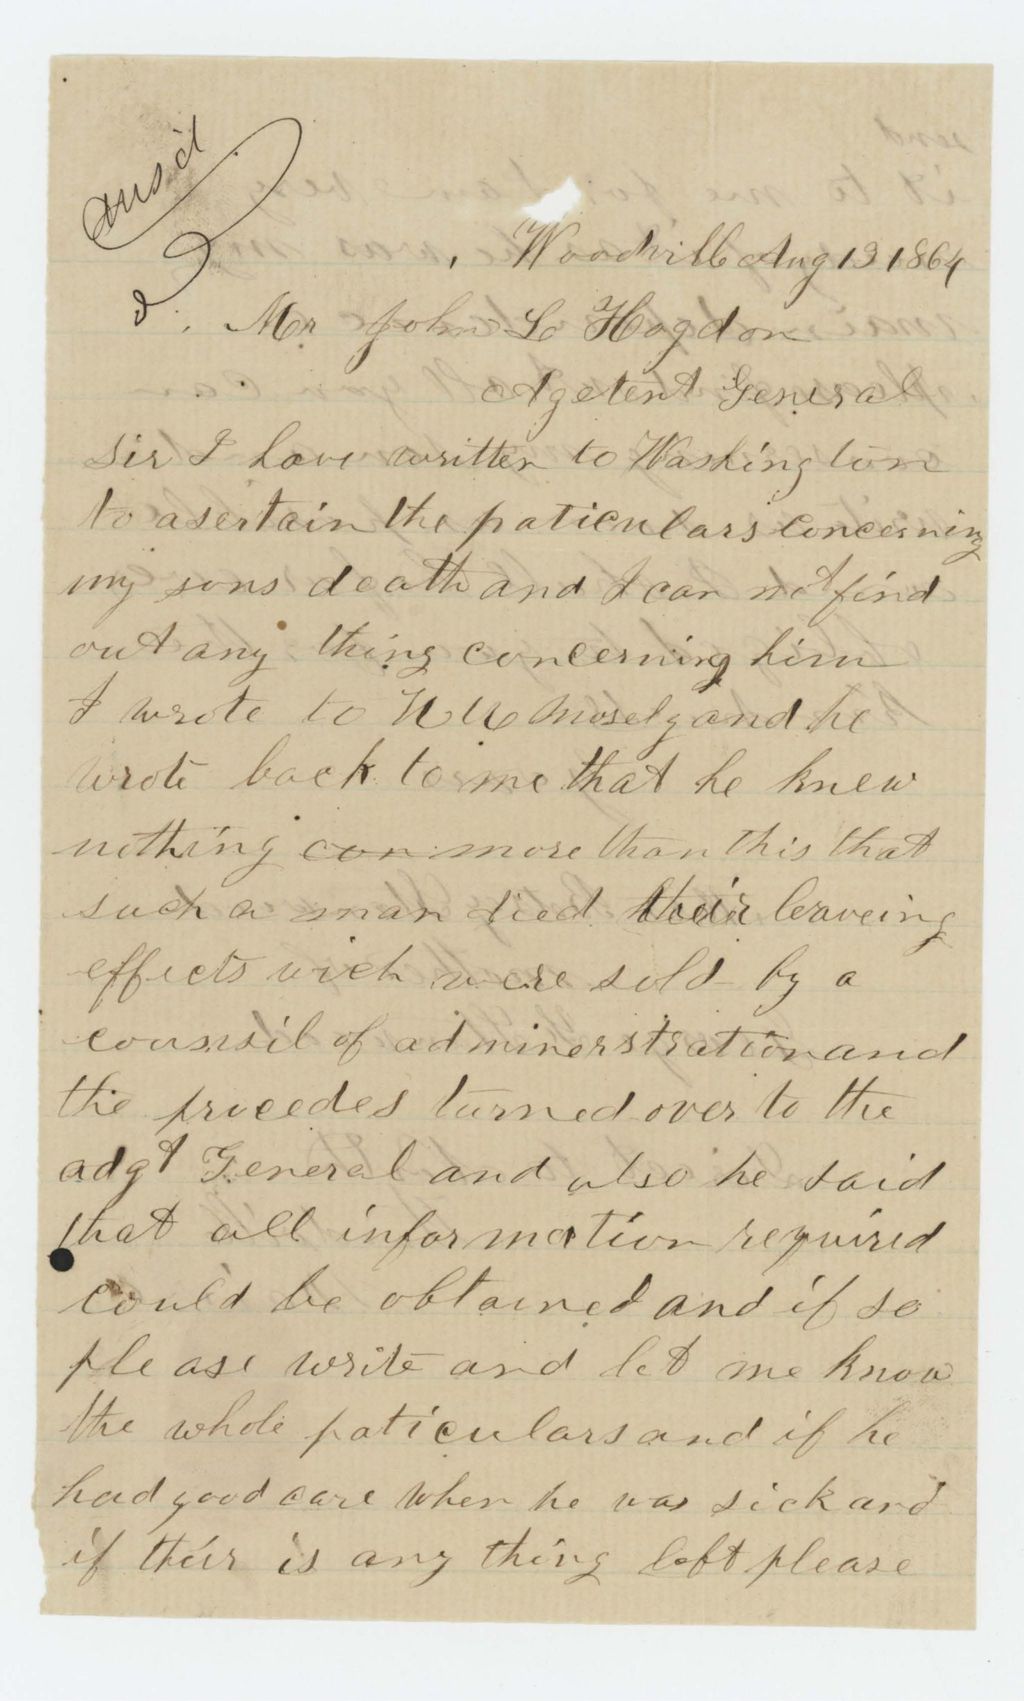 Ansd
Woodvill Aug 13 1864
Mr John L Hogdon
Agetent General
Sir I have written to Washington
to asertain the paticulars concerning
my sons death and I can not find
out any thing concerning him
I wrote to Mosely and he
wrote back to me that he knew
nothing con more than this that
such a man died their leaveing
effects wich were sold by a
counsil of adminerstration and
the procedes turned over to the
adgt General and also he said
that all information required
could be obtained and if so
please write and let me know
the whole paticulars and if he
had good care when he was sick and
if their is any thing left please